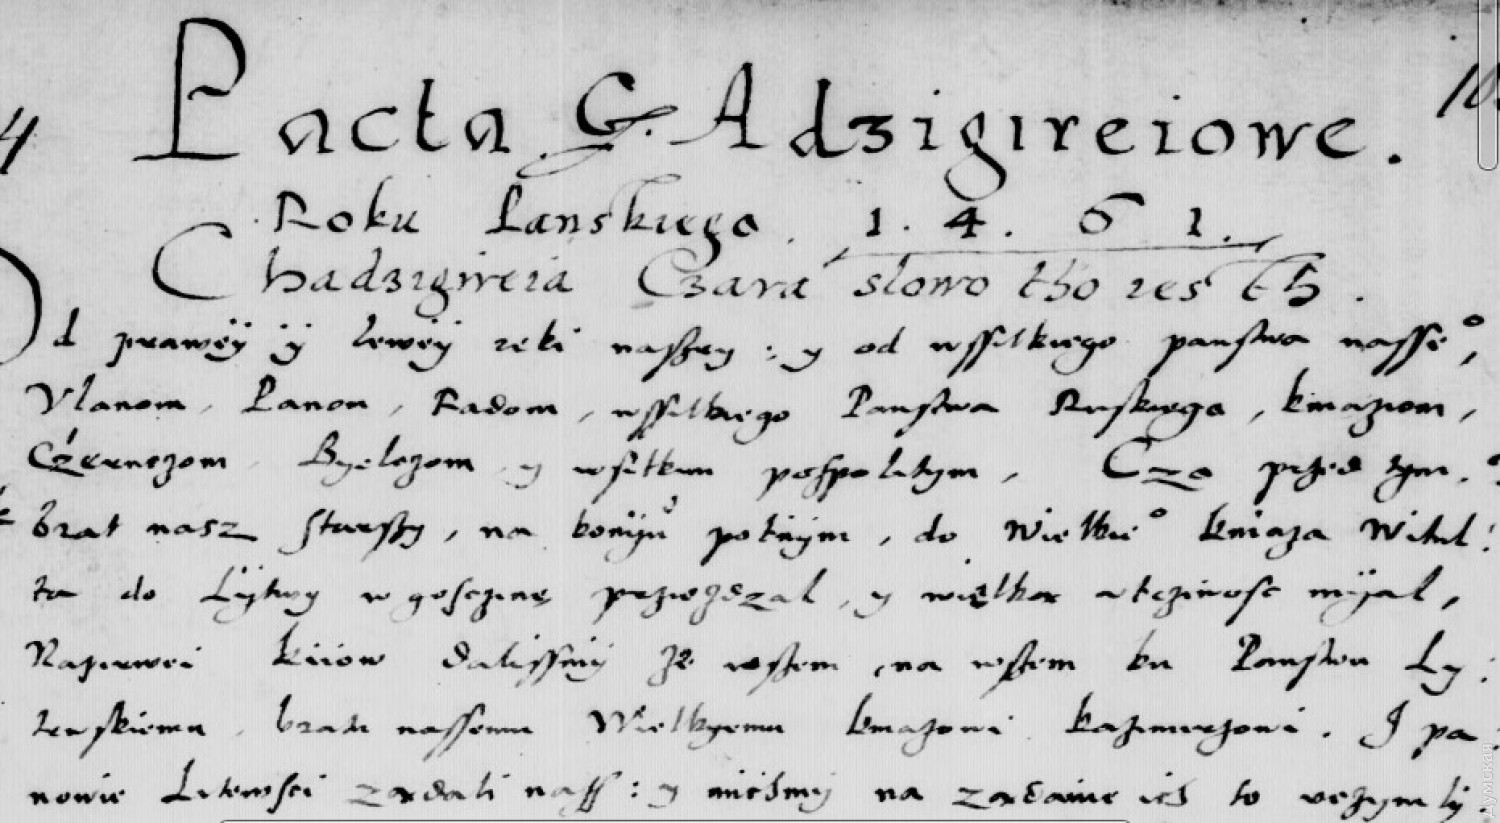 Pacta G. Adzigireiowe.
Roku Panskiego. 1. 4. 6 1.
Chadzigireia Czara slowo tho iesth.
Od prawëÿ ÿ lewëÿ reki naszey : y od wssitkiego panstwa nasse°,
Vlanom, Panom, Radom, wssitkiego Panstwa Ruskiego, kniaziom,
Czernczom Byelczom y wsitkim pospolitym, Czo przed tym,
brat nasz starszy, na koniju potnym, do Wielkie° kniaza Witul:
ta do Lÿtwy w gosczinę przieżdzal, y wielka uczciwosc mÿal,
Napirwei Kiiow dalissmÿ ze wszem, na wszem ku Panstwu Ly:
tewskiemu, bratu nassemu Wielkyemu kniazowi Kazimierzowi. I pa
nowie Litewsci zadali nass : y michmÿ na zadanie ich to uczynily.
Думская